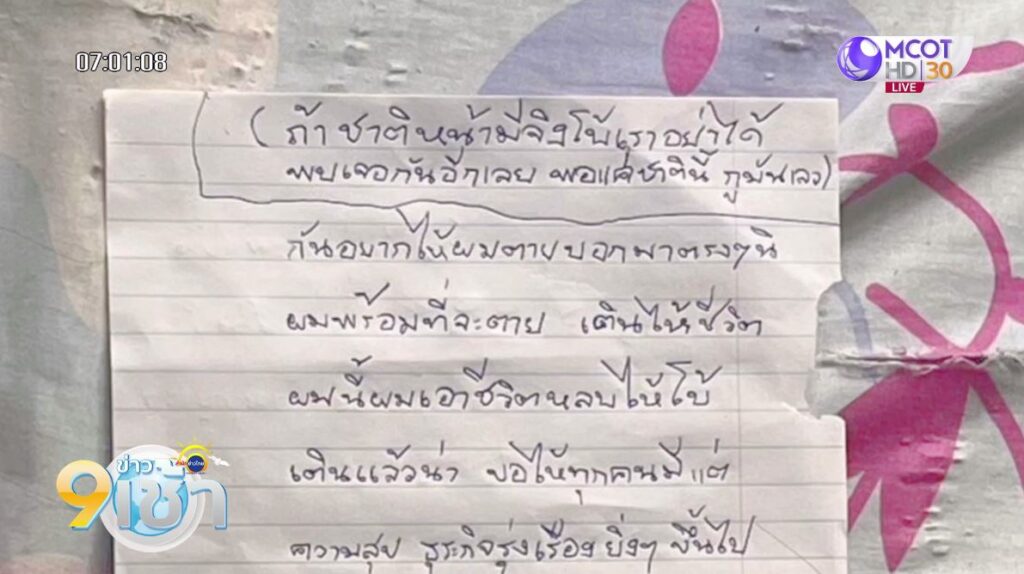 07:01:08
MCOT
HD 30
LIVE
(ถ้าชาติหน้ามีจิงโบ้เราอย่าได้
พบเจอกันอีกเลย พอแค่ชาตินี้ กูมันเลว)
กันอยากให้ผมตายบอกมาตรงๆนิ
ผมพร้อมที่จะตาย เดินให้ชีวิต
ผมนี้ผมเอาชีวิตหลบให้โบ้
เดินแล้วน่า ขอให้ทุกคนมีแต่
ความสุข ธุระกิจรุ่งเรือง ยิ่งๆ ขึ้นไป
ข่าว
9 เช้า